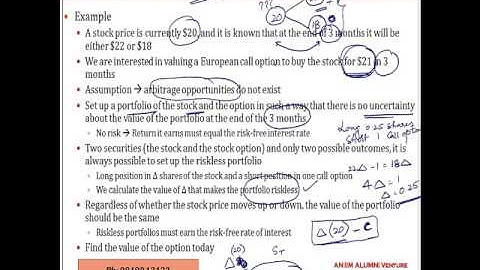 Example
A stock price is currently $20, and it is known that at the end of 3 months it will be
either $22 or $18
We are interested in valuing a European call option to buy the stock for $21 in 3
months
Assumption → arbitrage opportunities do not exist
Set up a portfolio of the stock and the option in such a way that there is no uncertainty
about the value of the portfolio at the end of the 3 months
No risk → Return it earns must equal the risk-free interest rate
Two securities (the stock and the stock option) and only two possible outcomes, it is
always possible to set up the riskless portfolio
Long position in Δ shares of the stock and a short position in one call option
We calculate the value of Δ that makes the portfolio riskless
Regardless of whether the stock price moves up or down, the value of the portfolio
should be the same
Riskless portfolios must earn the risk-free rate of interest
Find the value of the option today
???
20
18
Long 0.25 shares
Short 1 call option
22Δ - 1 = 18Δ
4Δ = 1
Δ = 0.25
Δ(20) - c
(20)
Δ
S_T
AN IIM ALUMNI VENTURE